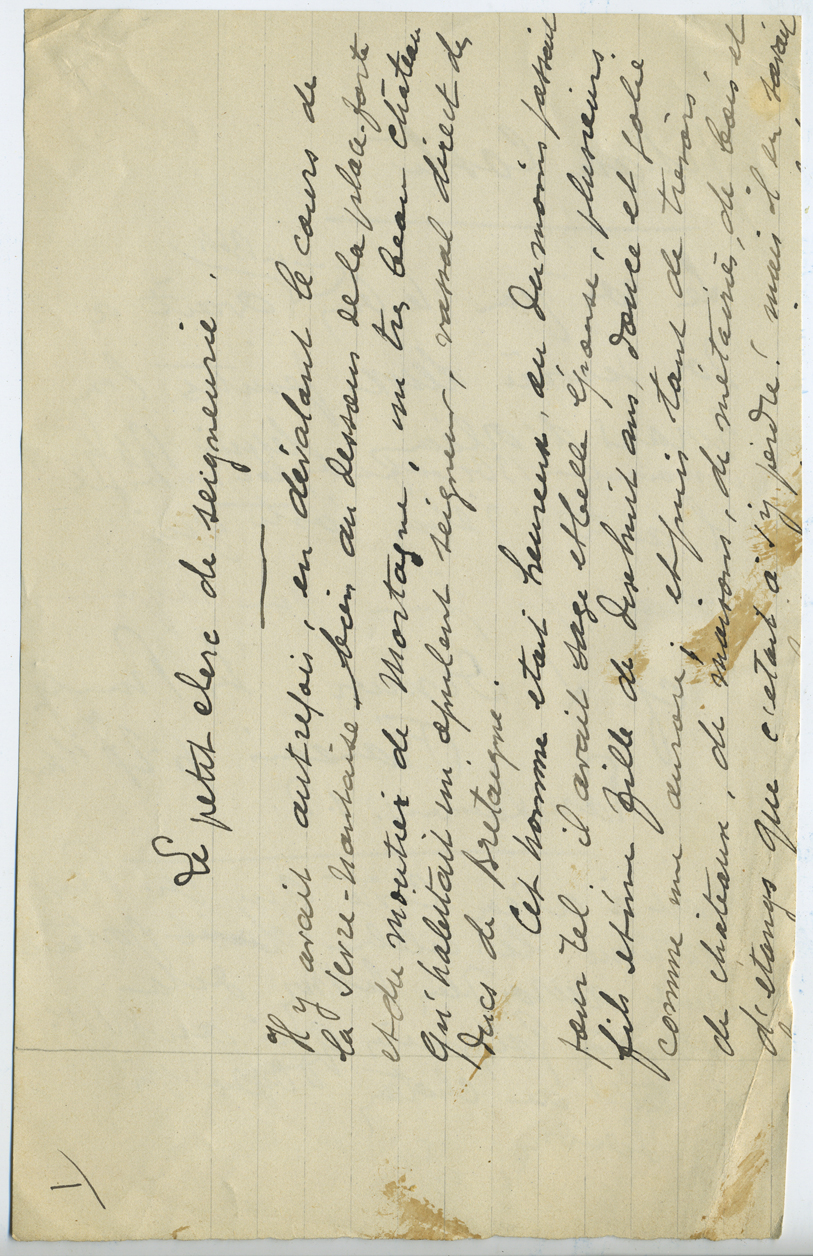 1/
Le petit clerc de seigneurie.
Il y avait autrefois, en dévalant le cours de
la Sevre-Nantaise, bien au dessous de la place-forte
et du moutier de Mortagne, un très beau château
qu'habitait un opulent seigneur, vassal direct des
Ducs de Bretaigne.
Cet homme etait heureux, ou du moins passait
pour tel. il avait sage et belle épouse, plusieurs
fils et une fille de dix huit ans, douce et jolie
comme une aurore, et puis tant de trésors,
de châteaux, de maisons, de métairies, de bois et
d'étangs que c'était à s'y perdre! mais il en savait